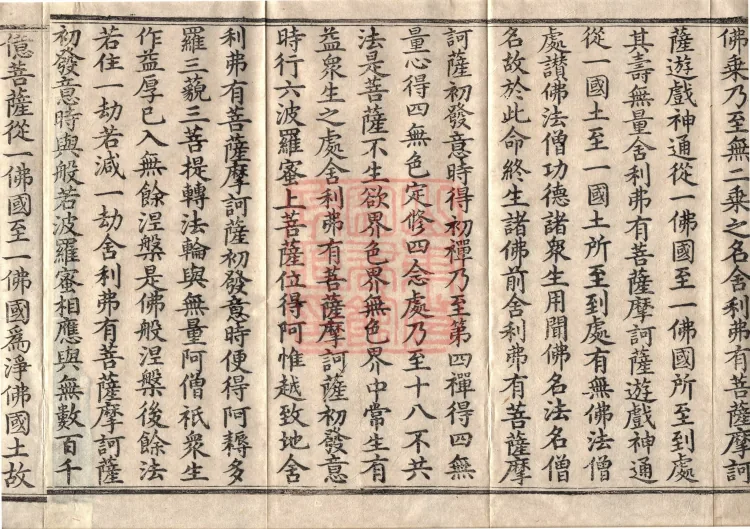 佛乗乃至無二乗之名舍利弗有菩薩摩訶
薩遊戲神通從一佛國至一佛國所至到處
其壽無量舍利弗有菩薩摩訶薩遊戲神通
從一國土至一國土所至到處有無佛法僧
處讃佛法僧功德諸衆生用聞佛名法名僧
名故於此命終生諸佛前舍利弗有菩薩摩
訶薩初發意時得初禪乃至第四禪得四無
量心得四無色定修四念處乃至十八不共
法是菩薩不生欲界色界無色界中常生有
益衆生之處舍利弗有菩薩摩訶薩初發意
時行六波羅蜜上菩薩位得阿惟越致地舍
利弗有菩薩摩訶薩初發意時便得阿耨多
羅三藐三菩提轉法輪與無量阿僧祇衆生
作益厚已入無餘涅槃是佛般涅槃後餘法
若住一劫若減一劫舍利弗有菩薩摩訶薩
初發意時與般若波羅蜜相應與無數百千
億菩薩從一佛國至一佛國爲淨佛國土故